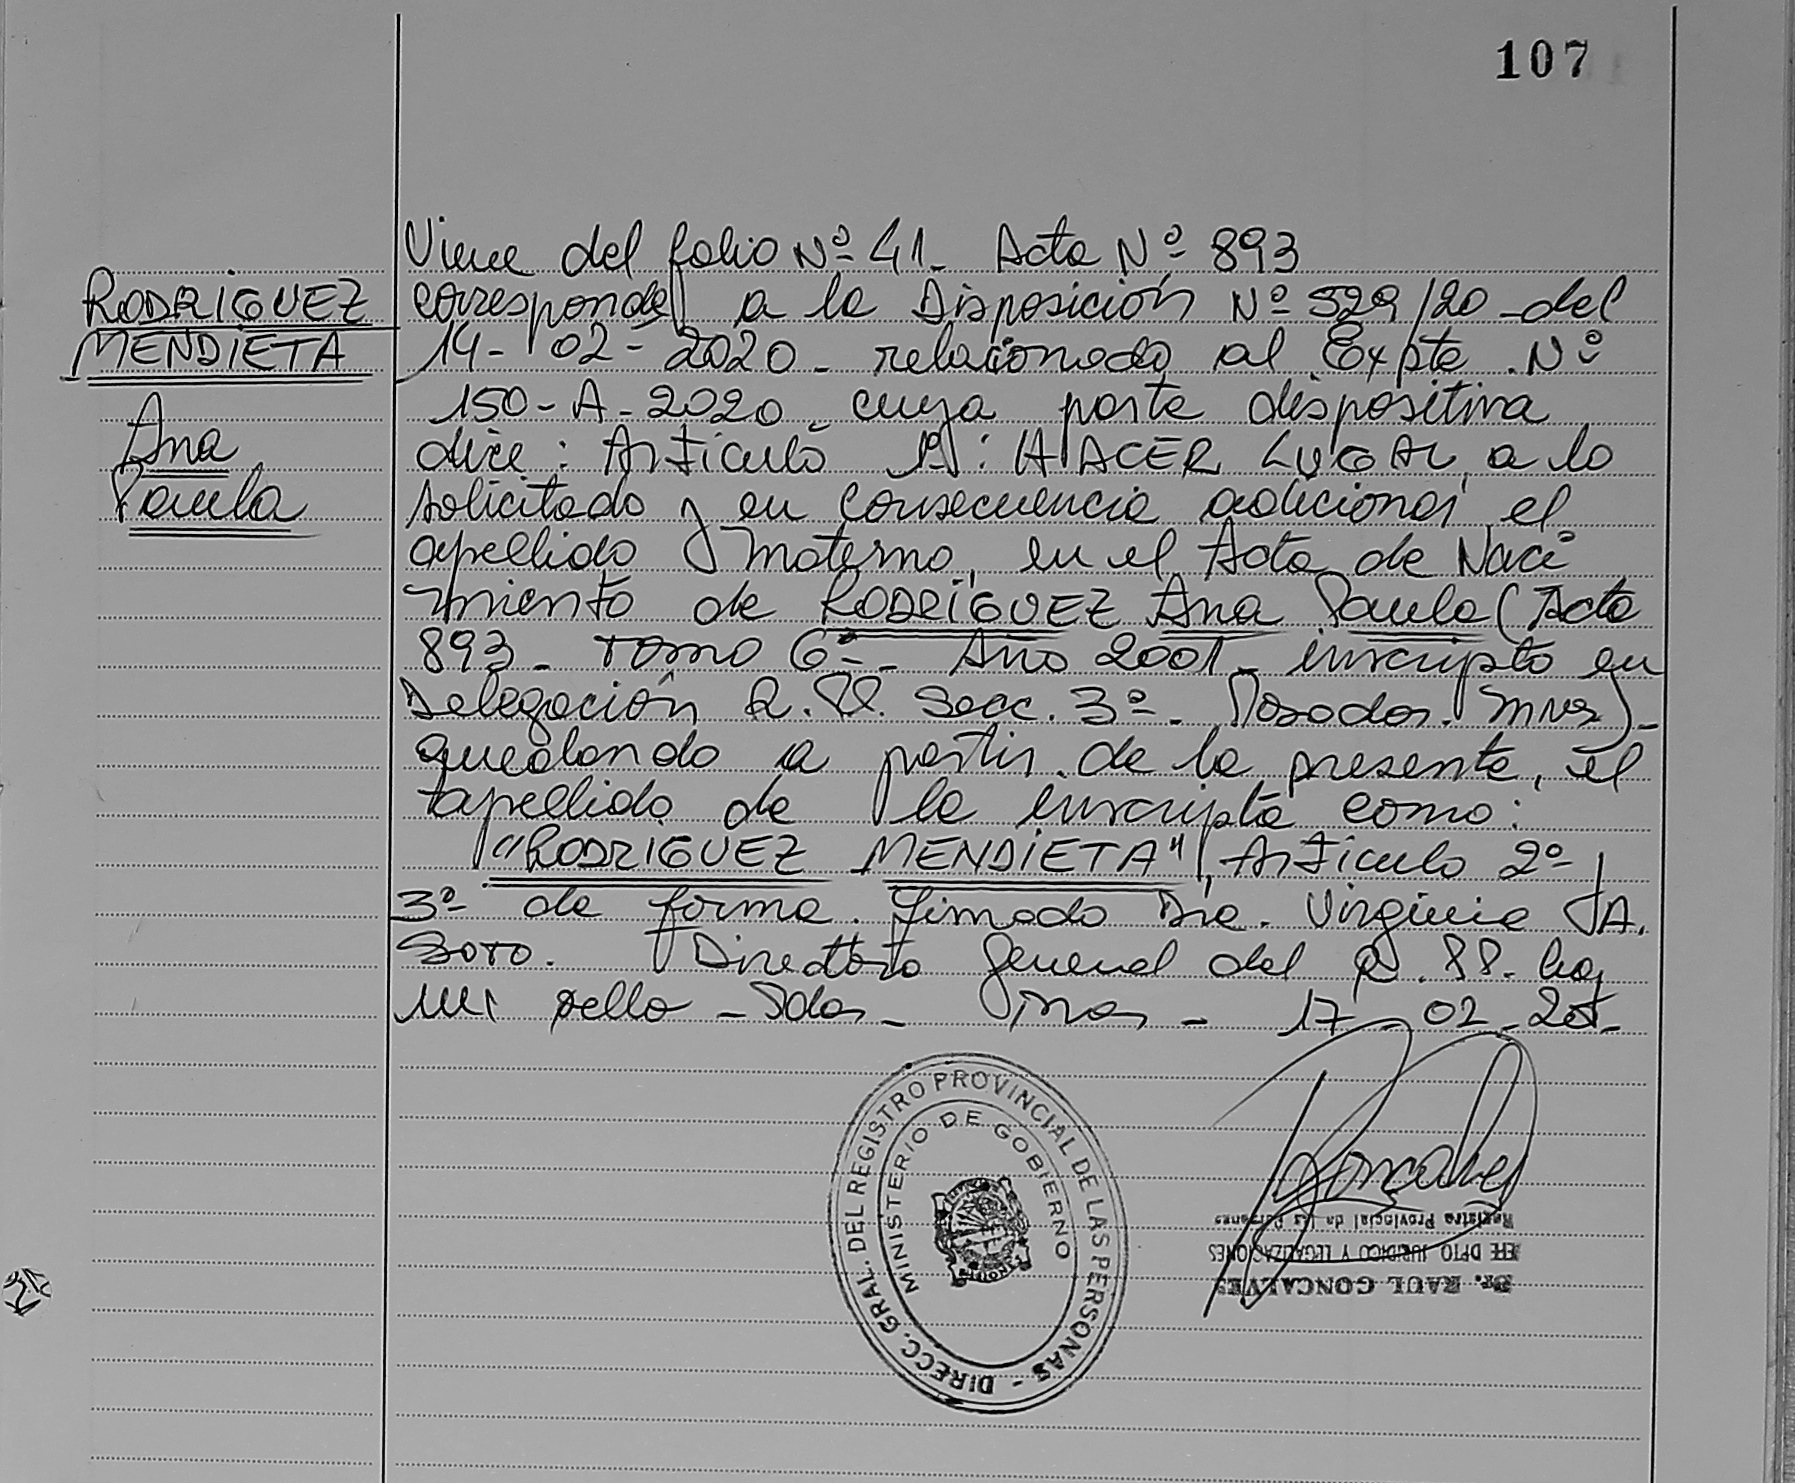 107
RODRIGUEZ
MENDIETA
Ana
Paula
Viene del folio Nº 41- Acta Nº 893
corresponde a la Disposición Nº 529/20 del
14-02-2020- relacionada al Expte. Nº
150-A-2020 cuya parte dispositiva
dice: Artículo 1º: HACER LUGAR a lo
solicitado y en consecuencia adicionar el
apellido materno, en el Acta de Naci
miento de RODRIGUEZ Ana Paula (Acta
893- Tomo 6º- Año 2001- inscripto en
Delegación R.PP. Secc. 3º- Posadas. Mnes)-
quedando a partir de la presente, el
apellido de la inscripta como:
"RODRIGUEZ MENDIETA", Artículo 2º y
3º de forma. Firmado Dra. Virginia A.
Soto. Directora General del R.PP. hay
un sello - Pdas- Mnes - 17-02-20-
DIRECC. GRAL. DEL REGISTRO PROVINCIAL DE LAS PERSONAS -
MINISTERIO DE GOBIERNO
Dr. RAUL GONCALVES
JEFE DPTO JURIDICO Y LEGALIZACIONES
Registro Provincial de las Personas